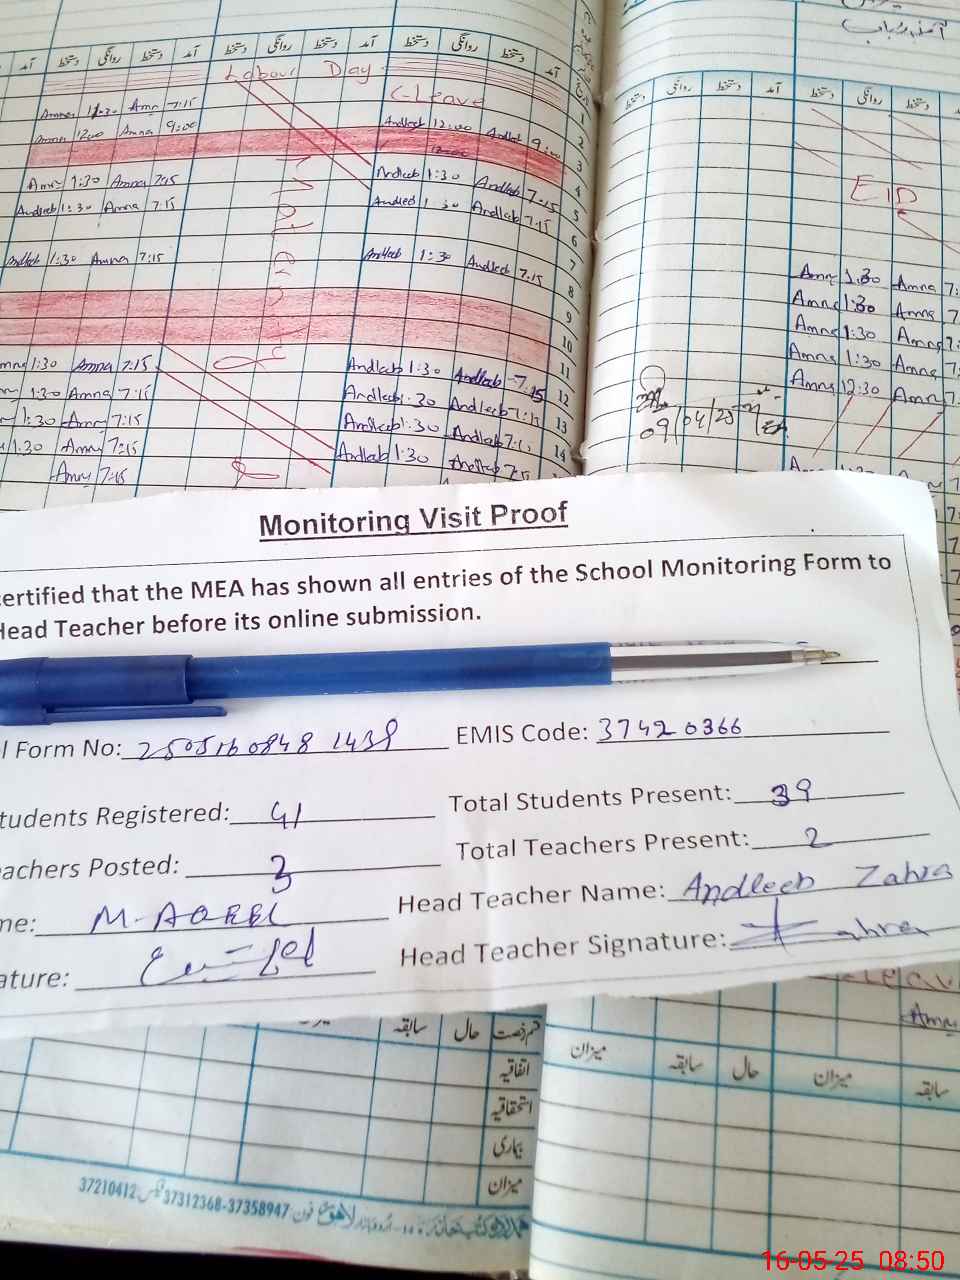 آمد دستخط روانگی دستخط آمد دستخط روانگی دستخط آمد دستخط روانگی دستخط آمد
Labour Day
C-Leave
1
Amna 11:30 Amna 7:15
Amna 12:00 Amna 9:00 Andleeb 12:00 Andleeb 9:00 2
3
Amna 1:30 Amna 7:15 Andleeb 1:30 Andleeb 7:15 4
Andleeb 1:30 Amna 7:15 Andleeb 1:30 Andleeb 7:15 5
6
Andleeb 1:30 Amna 7:15 Andleeb 1:30 Andleeb 7:15 7
8
9
10
11
Amna 1:30 Amna 7:15 Andleeb 1:30 Andleeb 7:15 12
1:30 Amna 7:15 Andleeb 1:30 Andleeb 7:15 13
1:30 Amna 7:15 Andleeb 1:30 Andleeb 7:15 14
1:30 Amna 7:15 Andleeb 1:30 Andleeb 7:15
Amna 7:15
دستخط روانگی دستخط آمد دستخط روانگی دستخط
EID
Amna 1:30 Amna 7:
Amna 1:30 Amna 7:
Amna 1:30 Amna 7:
Amna 1:30 Amna 7:
Amna 12:30 Amna 7:
09/04/25
Monitoring Visit Proof
certified that the MEA has shown all entries of the School Monitoring Form to
Head Teacher before its online submission.
l Form No: 2505160848 1439 EMIS Code: 37420366
tudents Registered: 41 Total Students Present: 39
eachers Posted: 3 Total Teachers Present: 2
me: M. AQEEL Head Teacher Name: Andleeb Zahra
ature: Head Teacher Signature: Zahra
Leave
Amna
میزان سابقہ حال قسم رخصت
اتفاقیہ
استحقاقیہ
بیماری
میزان
میزان سابقہ حال میزان سابقہ
لاہور فون 37312368-37358947 فیکس 37210412
16-05-25 08:50